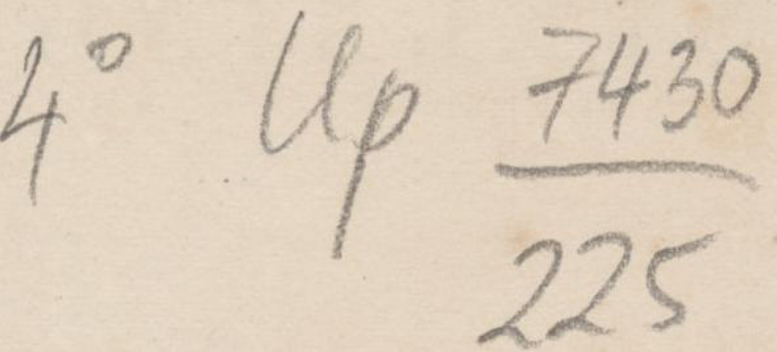 4° Up 7430
225